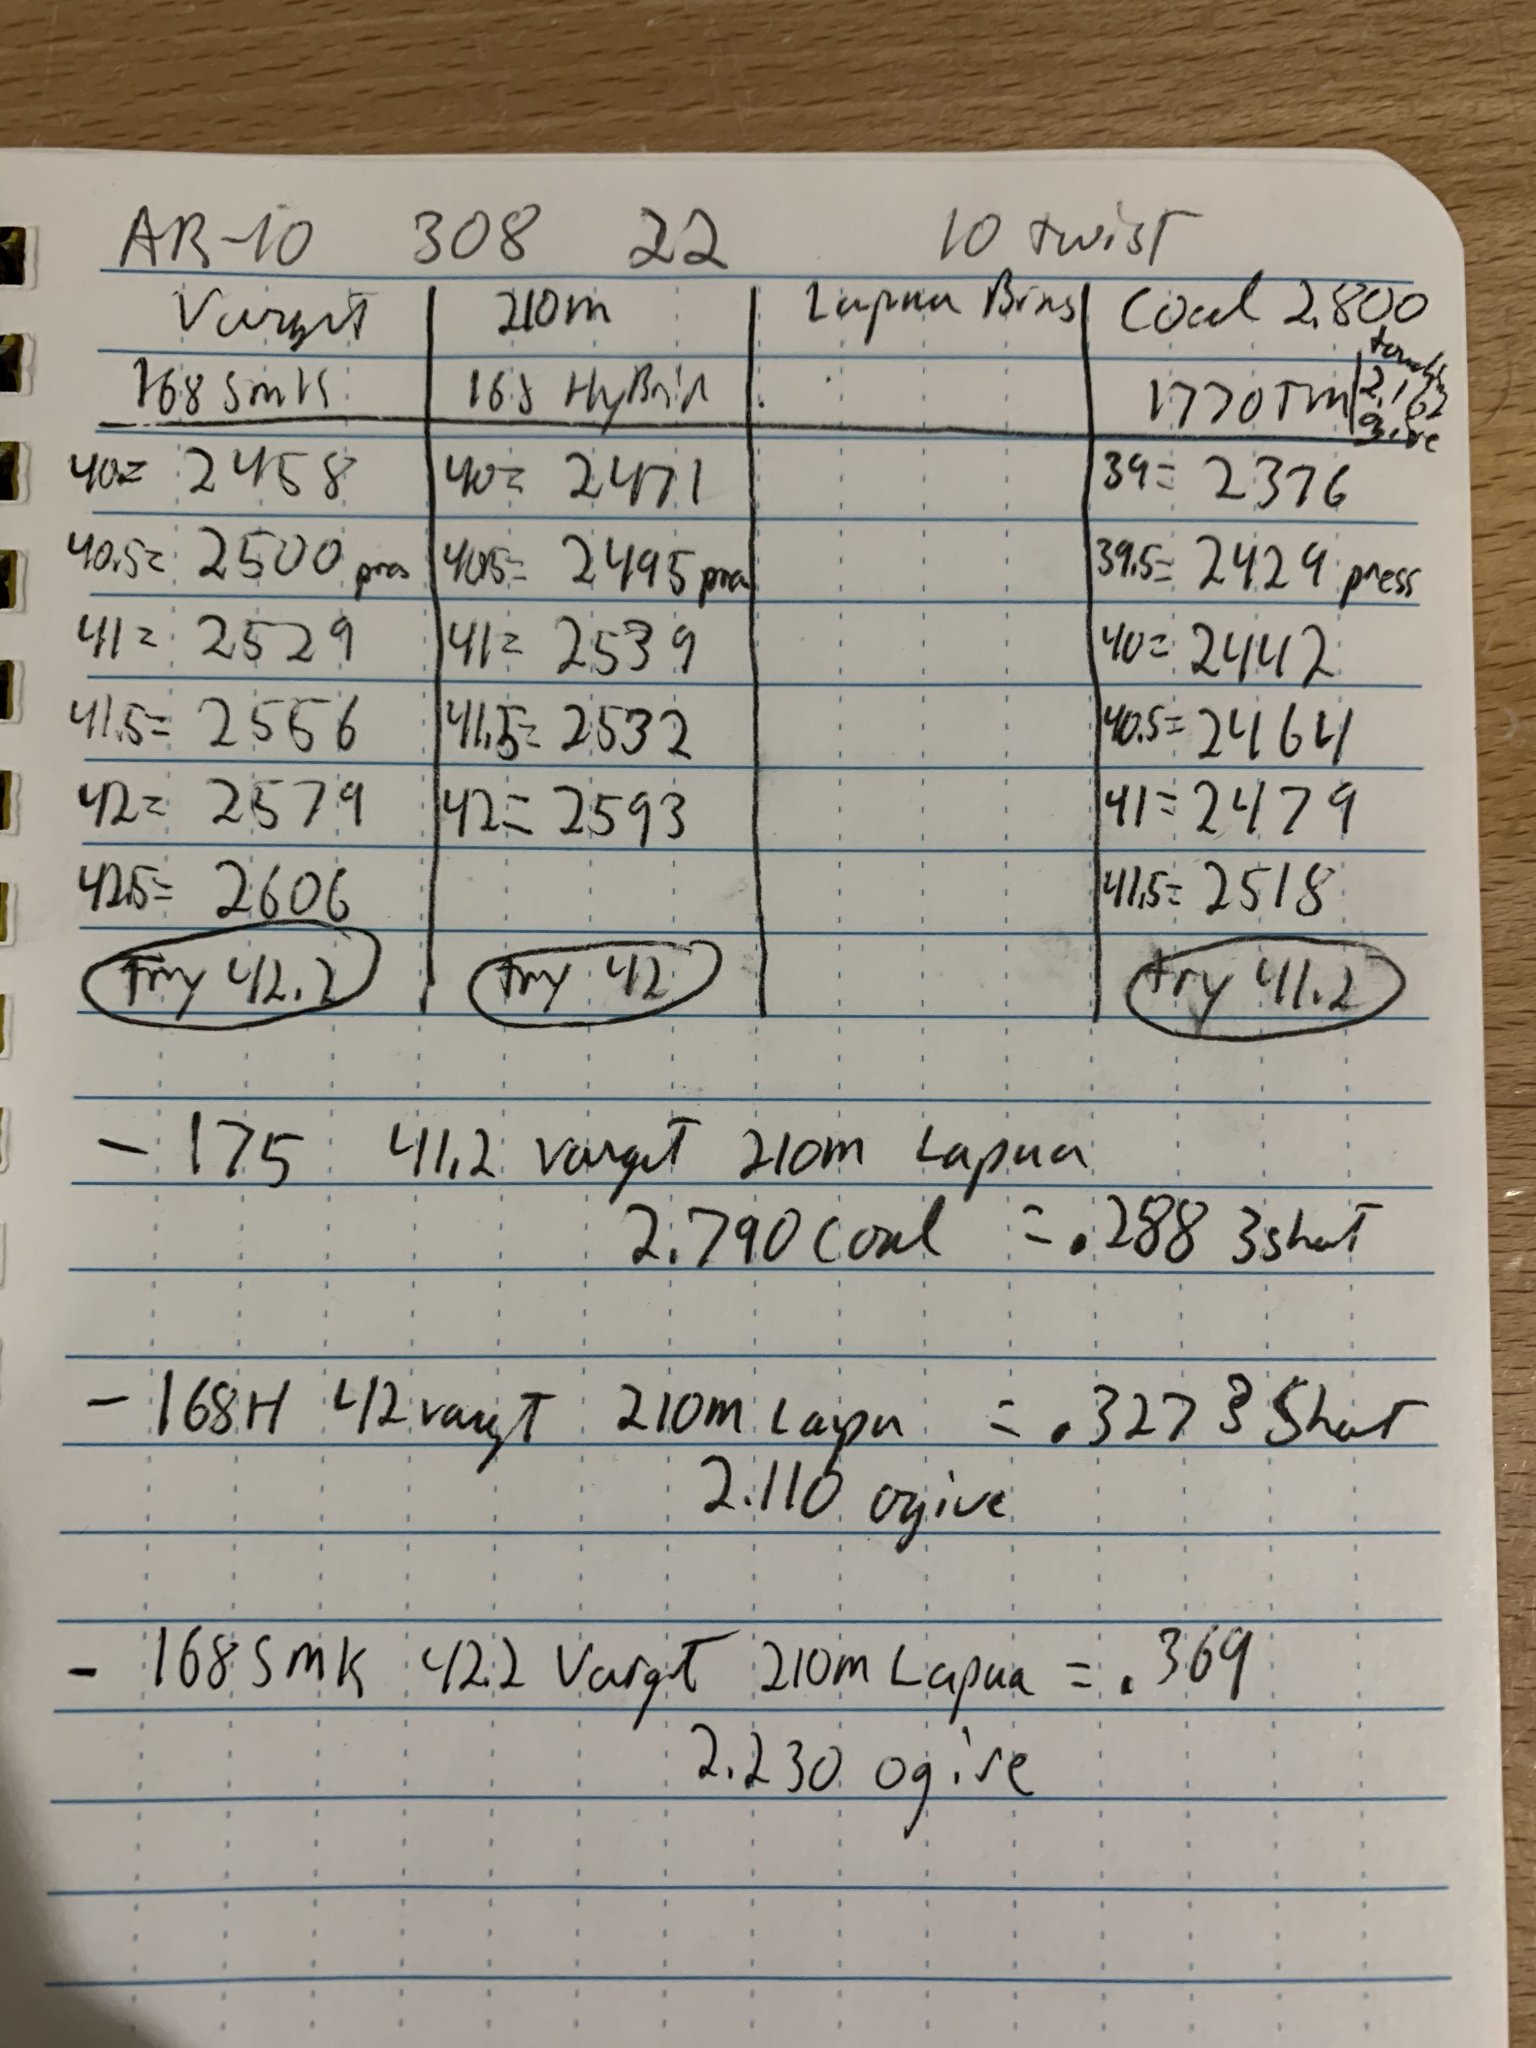 AR-10 308 22 10 twist
Vargt 210m Lapua Brass Coal 2.800
168 SmK 168 HyBrid 177 OTM touch 2.162 ogive
40= 2458 40= 2471 39= 2376
40.5= 2500 pres 40.5= 2495 pres 39.5= 2429 press
41= 2529 41= 2539 40= 2442
41.5= 2556 41.5= 2532 40.5= 2464
42= 2579 42= 2593 41= 2479
42.5= 2606 41.5= 2518
Try 42.2 try 42 try 41.2
- 175 41.2 vargt 210m Lapua
2.790 Coal = .288 3 shot
- 168H 42 vargt 210m Lapu = .327 3 Shot
2.110 ogive
- 168 SmK 42.2 Vargt 210m Lapua = .369
2.230 ogive